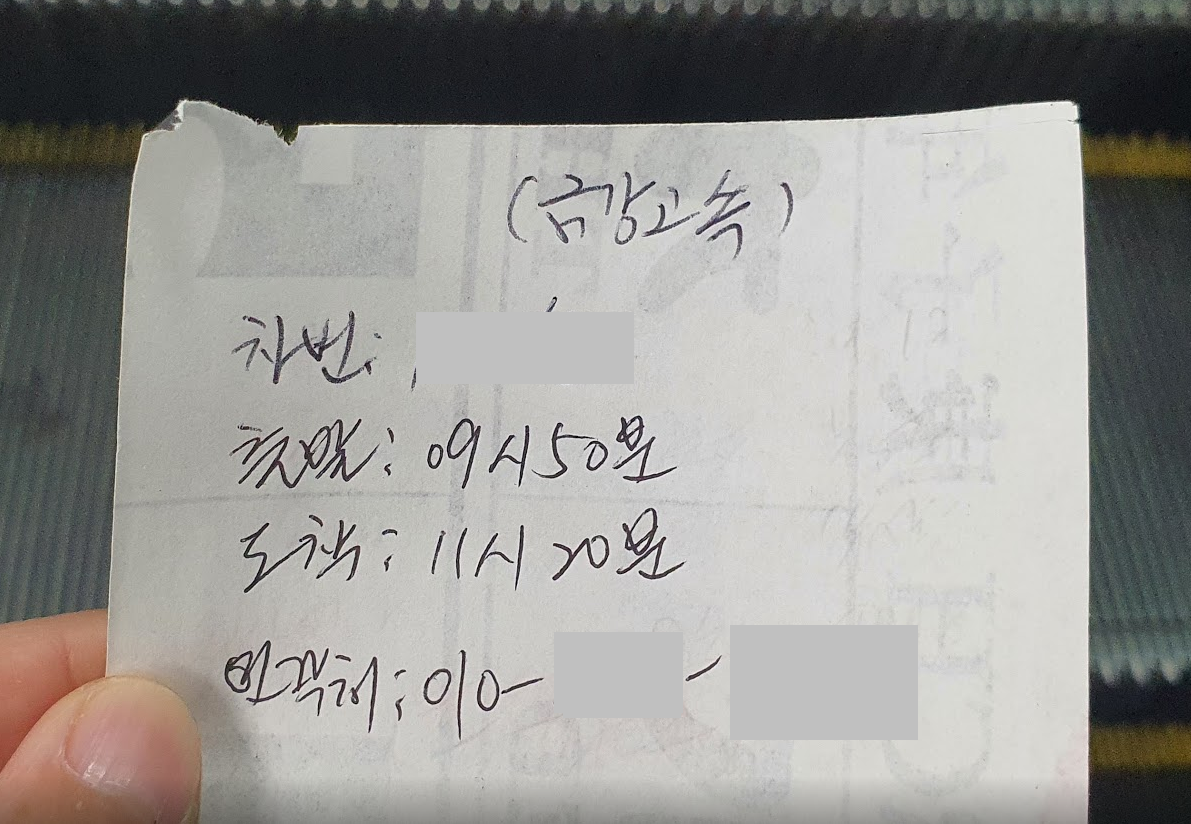 (금강고속)
차번:
출발: 09시50분
도착: 11시 20분
연락처: 010-   -